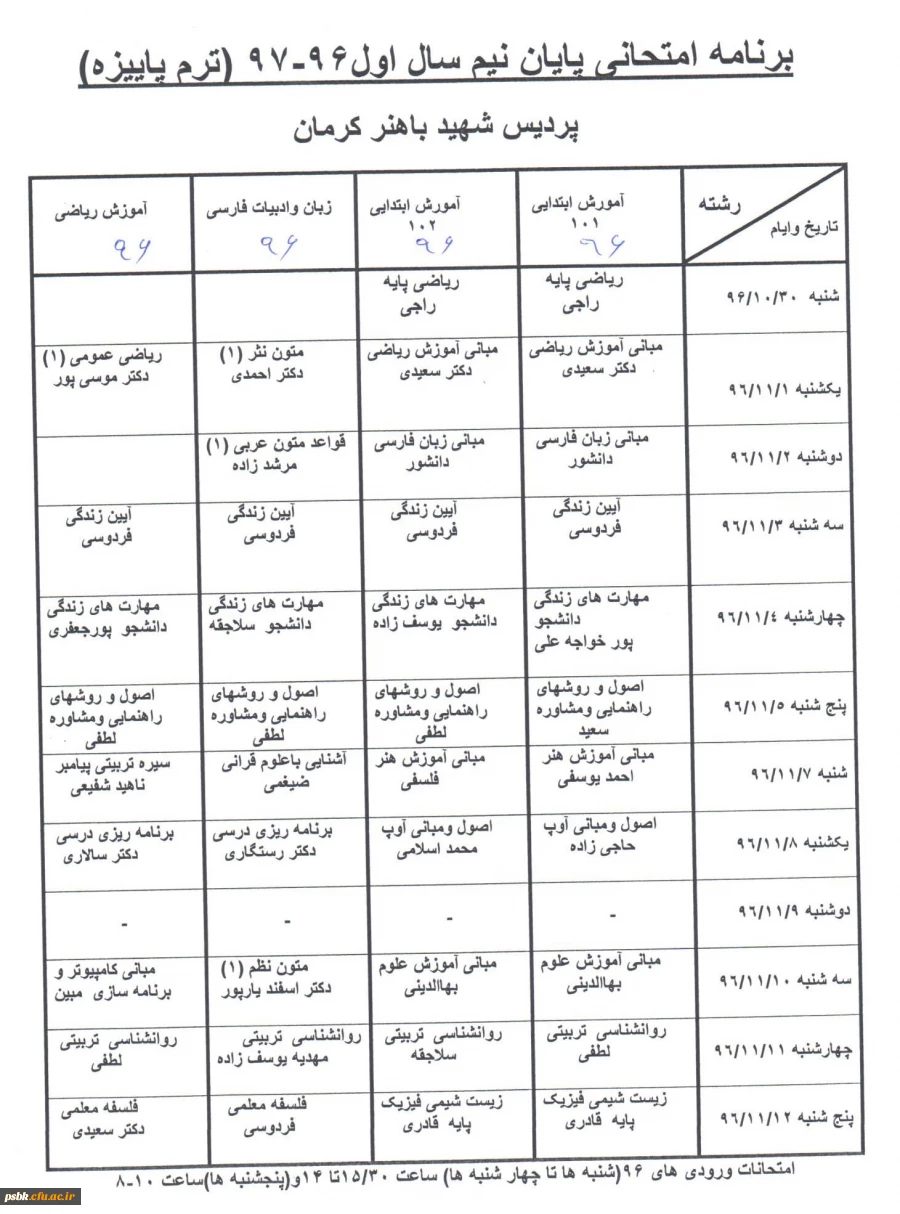 برنامه امتحانی پایان نیم سال اول ۹۶-۹۷ (ترم پاییزه)
پردیس شهید باهنر کرمان
رشته
تاریخ وایام
آمورش ابتدایی
۱۰۱
۹۶
آمورش ابتدایی
۱۰۲
۹۶
زبان وادبیات فارسی
۹۶
آموزش ریاضی
۹۶
شنبه ۹۶/۱۰/۳۰
ریاضی پایه
راجی
ریاضی پایه
راجی
یکشنبه ۹٦/۱۱/۱
مبانی آموزش ریاضی
دکتر سعیدی
مبانی آموزش ریاضی
دکتر سعیدی
متون نثر (۱)
دکتر احمدی
ریاضی عمومی (۱)
دکتر موسی پور
دوشنبه ۹٦/۱۱/۲
مبانی زبان فارسی
دانشور
مبانی زبان فارسی
دانشور
قواعد متون عربی (۱)
مرشد زاده
سه شنبه ۹٦/۱۱/۳
آیین زندگی
فردوسی
آیین زندگی
فردوسی
آیین زندگی
فردوسی
آیین زندگی
فردوسی
چهارشنبه ۹٦/۱۱/٤
مهارت های زندگی
دانشجو
پور خواجه علی
مهارت های زندگی
دانشجو یوسف زاده
مهارت های زندگی
دانشجو سلاجقه
مهارت های زندگی
دانشجو پورجعفری
پنج شنبه ۹٦/۱۱/٥
اصول و روشهای
راهنمایی ومشاوره
سعید
اصول و روشهای
راهنمایی ومشاوره
لطفی
اصول و روشهای
راهنمایی ومشاوره
لطفی
اصول و روشهای
راهنمایی ومشاوره
لطفی
شنبه ۹٦/۱۱/۷
مبانی آموزش هنر
احمد یوسفی
مبانی آموزش هنر
فلسفی
آشنایی باعلوم قرانی
ضیغمی
سیره تربیتی پیامبر
ناهید شفیعی
یکشنبه ۹٦/۱۱/۸
اصول ومبانی آوپ
حاجی زاده
اصول ومبانی آوپ
محمد اسلامی
برنامه ریزی درسی
دکتر رستگاری
برنامه ریزی درسی
دکتر سالاری
دوشنبه ۹٦/۱۱/۹
-
-
-
-
سه شنبه ۹٦/۱۱/۱۰
مبانی آموزش علوم
بهاالدینی
مبانی آموزش علوم
بهاالدینی
متون نظم (۱)
دکتر اسفند یارپور
مبانی کامپیوتر و
برنامه سازی مبین
چهارشنبه ۹٦/۱۱/۱۱
روانشناسی تربیتی
لطفی
روانشناسی تربیتی
سلاجقه
روانشناسی تربیتی
مهدیه یوسف زاده
روانشناسی تربیتی
لطفی
پنج شنبه ۹٦/۱۱/۱۲
زیست شیمی فیزیک
پایه قادری
زیست شیمی فیزیک
پایه قادری
فلسفه معلمی
فردوسی
فلسفه معلمی
دکتر سعیدی
امتحانات ورودی های ۹۶(شنبه ها تا چهار شنبه ها) ساعت ۱۵/۳۰تا ۱۴و(پنجشنبه ها)ساعت ۱۰-۸
psbk.cfu.ac.ir